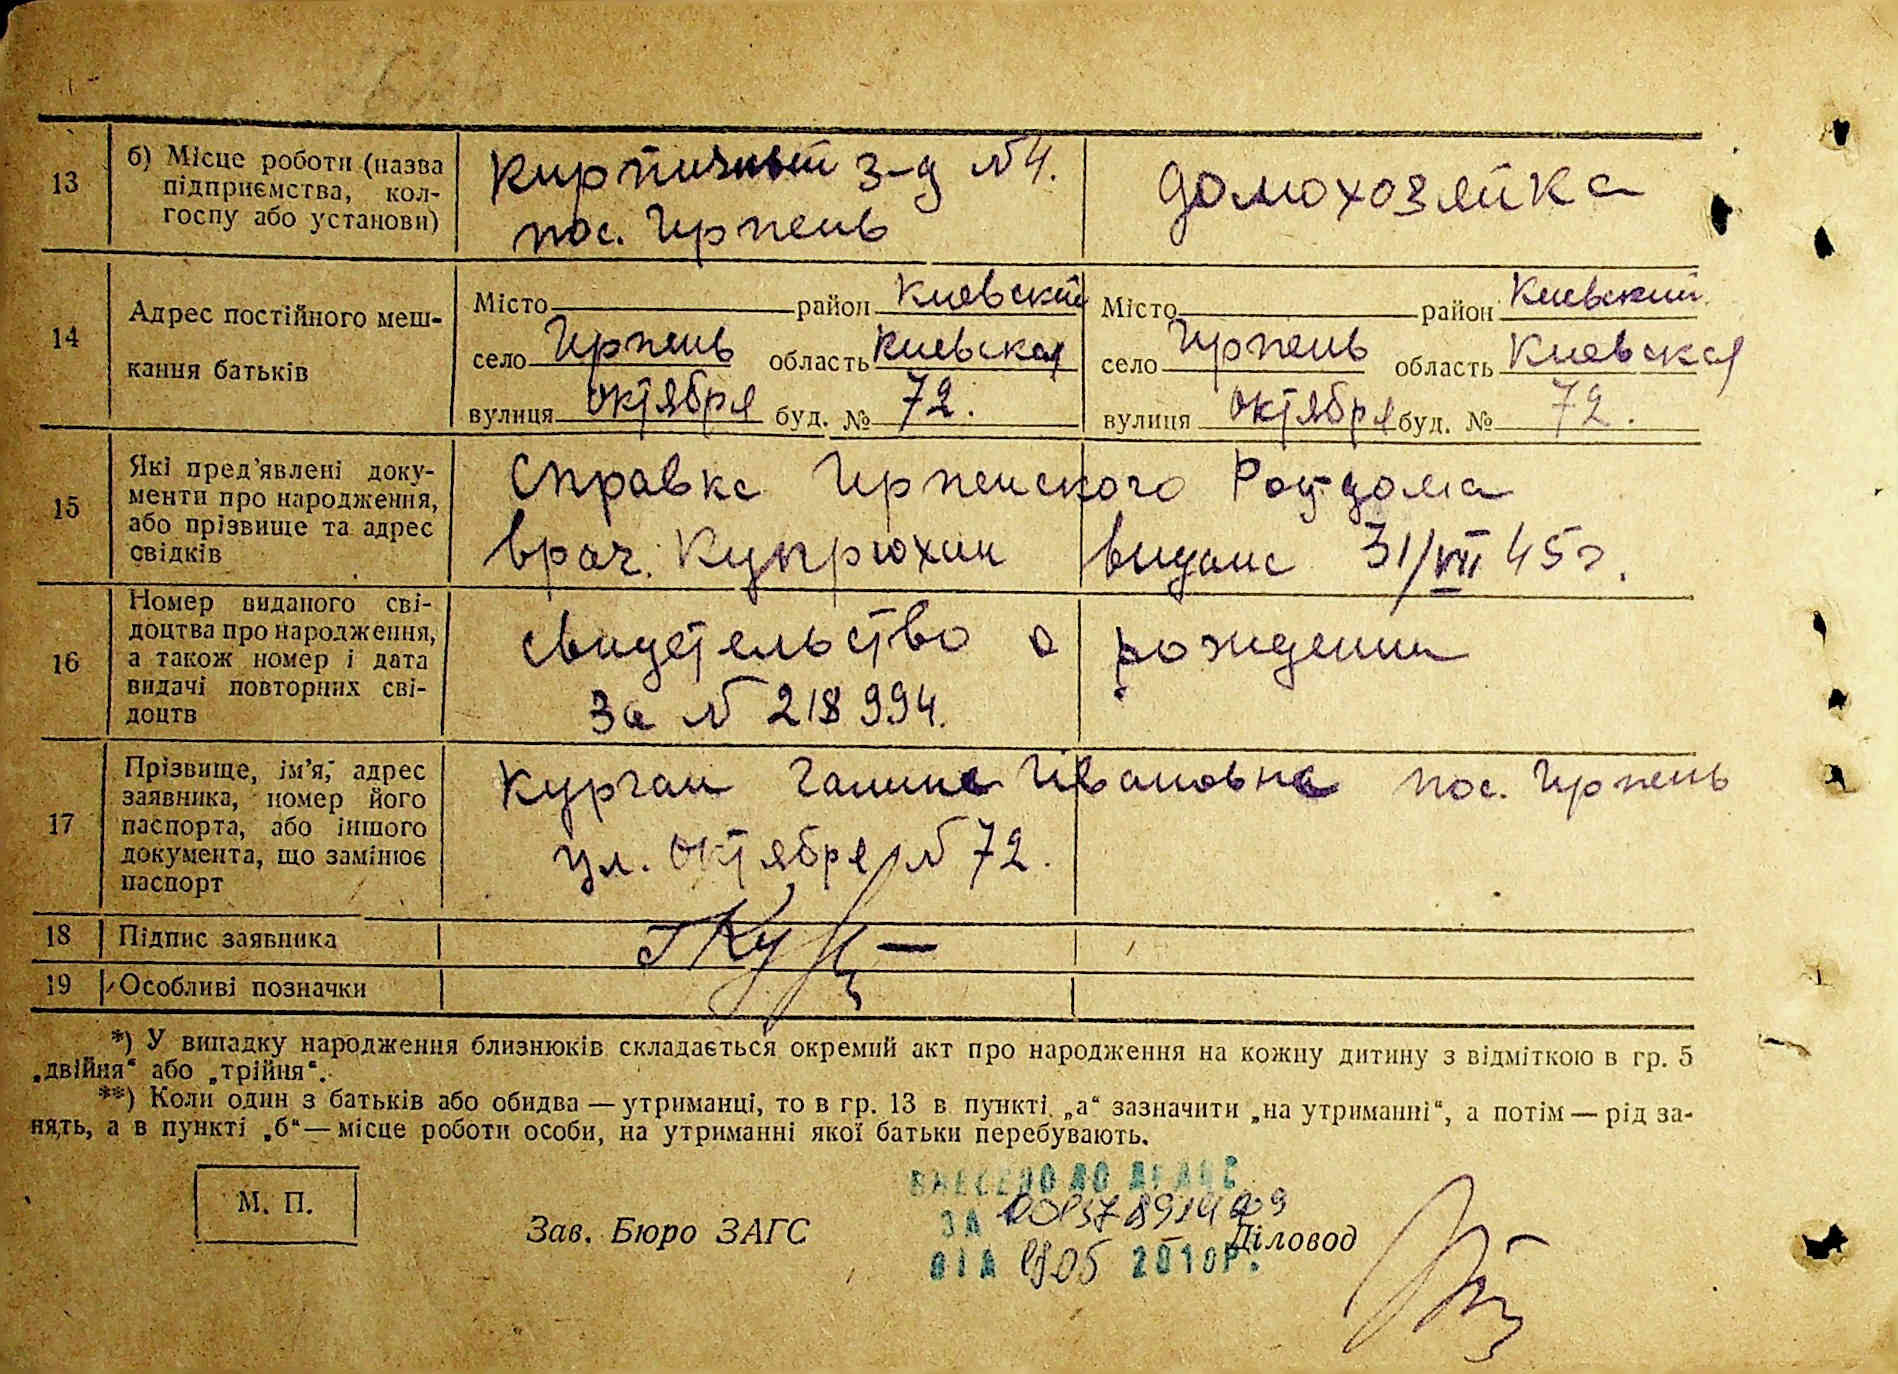 13
б) Місце роботи (назва
підприємства, кол-
госпу або установи)
Кирпичный з-д №4.
пос. Ирпень
домохозяйка
14
Адрес постійного меш-
кання батьків
Місто район Киевский
село Ирпень область Киевская
вулиця Октября буд. № 72.
Місто район Киевский
село Ирпень область Киевская
вулиця Октября буд. № 72.
15
Які пред'явлені доку-
менти про народження,
або прізвище та адрес
свідків
Справка Ирпенского Роддома
врач. Купрюхин видана 31/VII 45г.
16
Номер виданого сві-
доцтва про народження,
а також номер і дата
видачі повторних сві-
доцтв
Свидетельство о рождении
За № 218994.
17
Прізвище, ім'я, адрес
заявника, номер його
паспорта, або іншого
документа, що замінює
паспорт
Курган Галина Ивановна пос. Ирпень
ул. Октября № 72.
18
Підпис заявника
19
Особливі позначки
*) У випадку народження близнюків складається окремий акт про народження на кожну дитину з відміткою в гр. 5
„двійня“ або „трійня“.
**) Коли один з батьків або обидва — утриманці, то в гр. 13 в пункті „а“ зазначити „на утриманні“, а потім — рід за-
нять, а в пункті „б“ — місце роботи особи, на утриманні якої батьки перебувають.
М. П.
Зав. Бюро ЗАГС
ВНЕСЕНО ДО ДРАЦС
ЗА
Діловод
ВІД 05 2010Р.